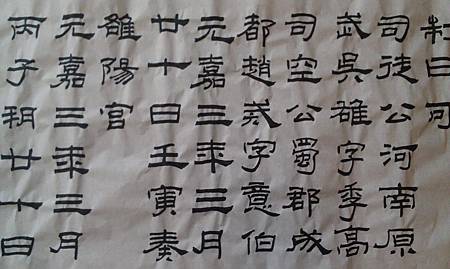 制曰可
司徒公河南原
武吳雄字季高
司空公蜀郡成
都趙戒字意伯
元嘉三年三月
廿七日壬寅奏
雒陽宮
元嘉三年三月
丙子朔廿七日